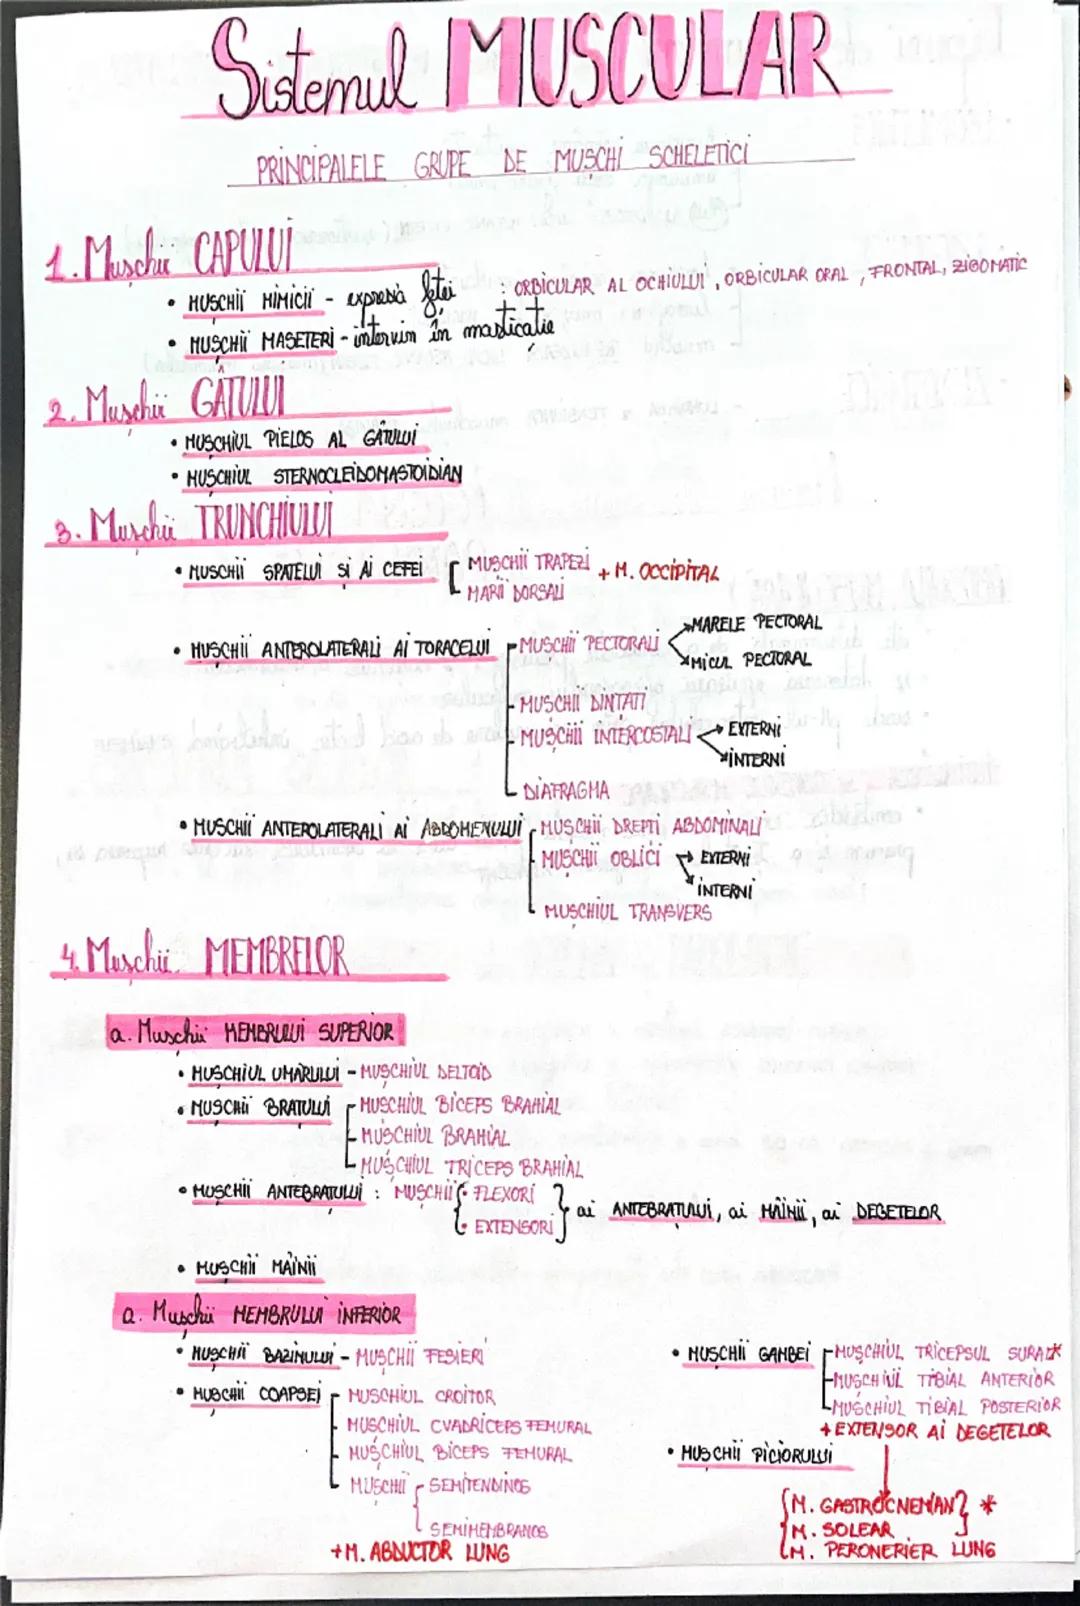 Sistemul MUSCULAR
PRINCIPALELE GRUPE DE MUSCHI SCHELETICI
1. Mușchii CAPULUI
• MUȘCHII MIMICII - expresia feței : ORBICULAR AL OCHIULUI, ORBICULAR ORAL, FRONTAL, ZIGOMATIC
• MUȘCHII MASETERI - intervin în masticație
2. Mușchii GÂTULUI
• MUȘCHIUL PIELOS AL GÂTULUI
• MUȘCHIUL STERNOCLEIDOMASTOIDIAN
3. Mușchii TRUNCHIULUI
• MUȘCHII SPATELUI SI AI CEFEI
MUȘCHII TRAPEZI + M. OCCIPITAL
MARII DORSALI
• MUȘCHII ANTEROLATERALI AI TORACELUI
MUȘCHII PECTORALI
MARELE PECTORAL
MICUL PECTORAL
MUȘCHII DINTATI
MUȘCHII INTERCOSTALI
EXTERNI
INTERNI
DIAFRAGMA
• MUȘCHII ANTEROLATERALI AI ABDOMENULUI
MUȘCHII DREPTI ABDOMINALI
MUȘCHII OBLICI
EXTERNI
INTERNI
MUȘCHIUL TRANSVERS
4. Mușchii MEMBRELOR
a. Mușchii MEMBRULUI SUPERIOR
• MUȘCHIUL UMĂRULUI - MUȘCHIUL DELTOID
• MUȘCHII BRATULUI
MUȘCHIUL BICEPS BRAHIAL
MUȘCHIUL BRAHIAL
MUȘCHIUL TRICEPS BRAHIAL
• MUȘCHII ANTEBRATULUI : MUȘCHII
• FLEXORI
• EXTENSORI
ai ANTEBRATULUI, ai MÂINII, ai DEGETELOR
• MUȘCHII MÂINII
a. Mușchii MEMBRULUI INFERIOR
• MUȘCHII BAZINULUI - MUȘCHII FESIERI
• MUȘCHII COAPSEI
MUSCHIUL CROITOR
MUSCHIUL CVADRICEPS FEMURAL
MUȘCHIUL BICEPS FEMURAL
MUȘCHII
SEMITENDINOS
SEMIMEMBRANOS
+ M. ABDUCTOR LUNG
• MUȘCHII GAMBEI
MUȘCHIUL TRICEPSUL SURAL*
MUȘCHIUL TIBIAL ANTERIOR
MUȘCHIUL TIBIAL POSTERIOR
+ EXTENSOR AI DEGETELOR
• MUȘCHII PICIORULUI
M. GASTROCNEMIAN *
M. SOLEAR
M. PERONERIER LUNG